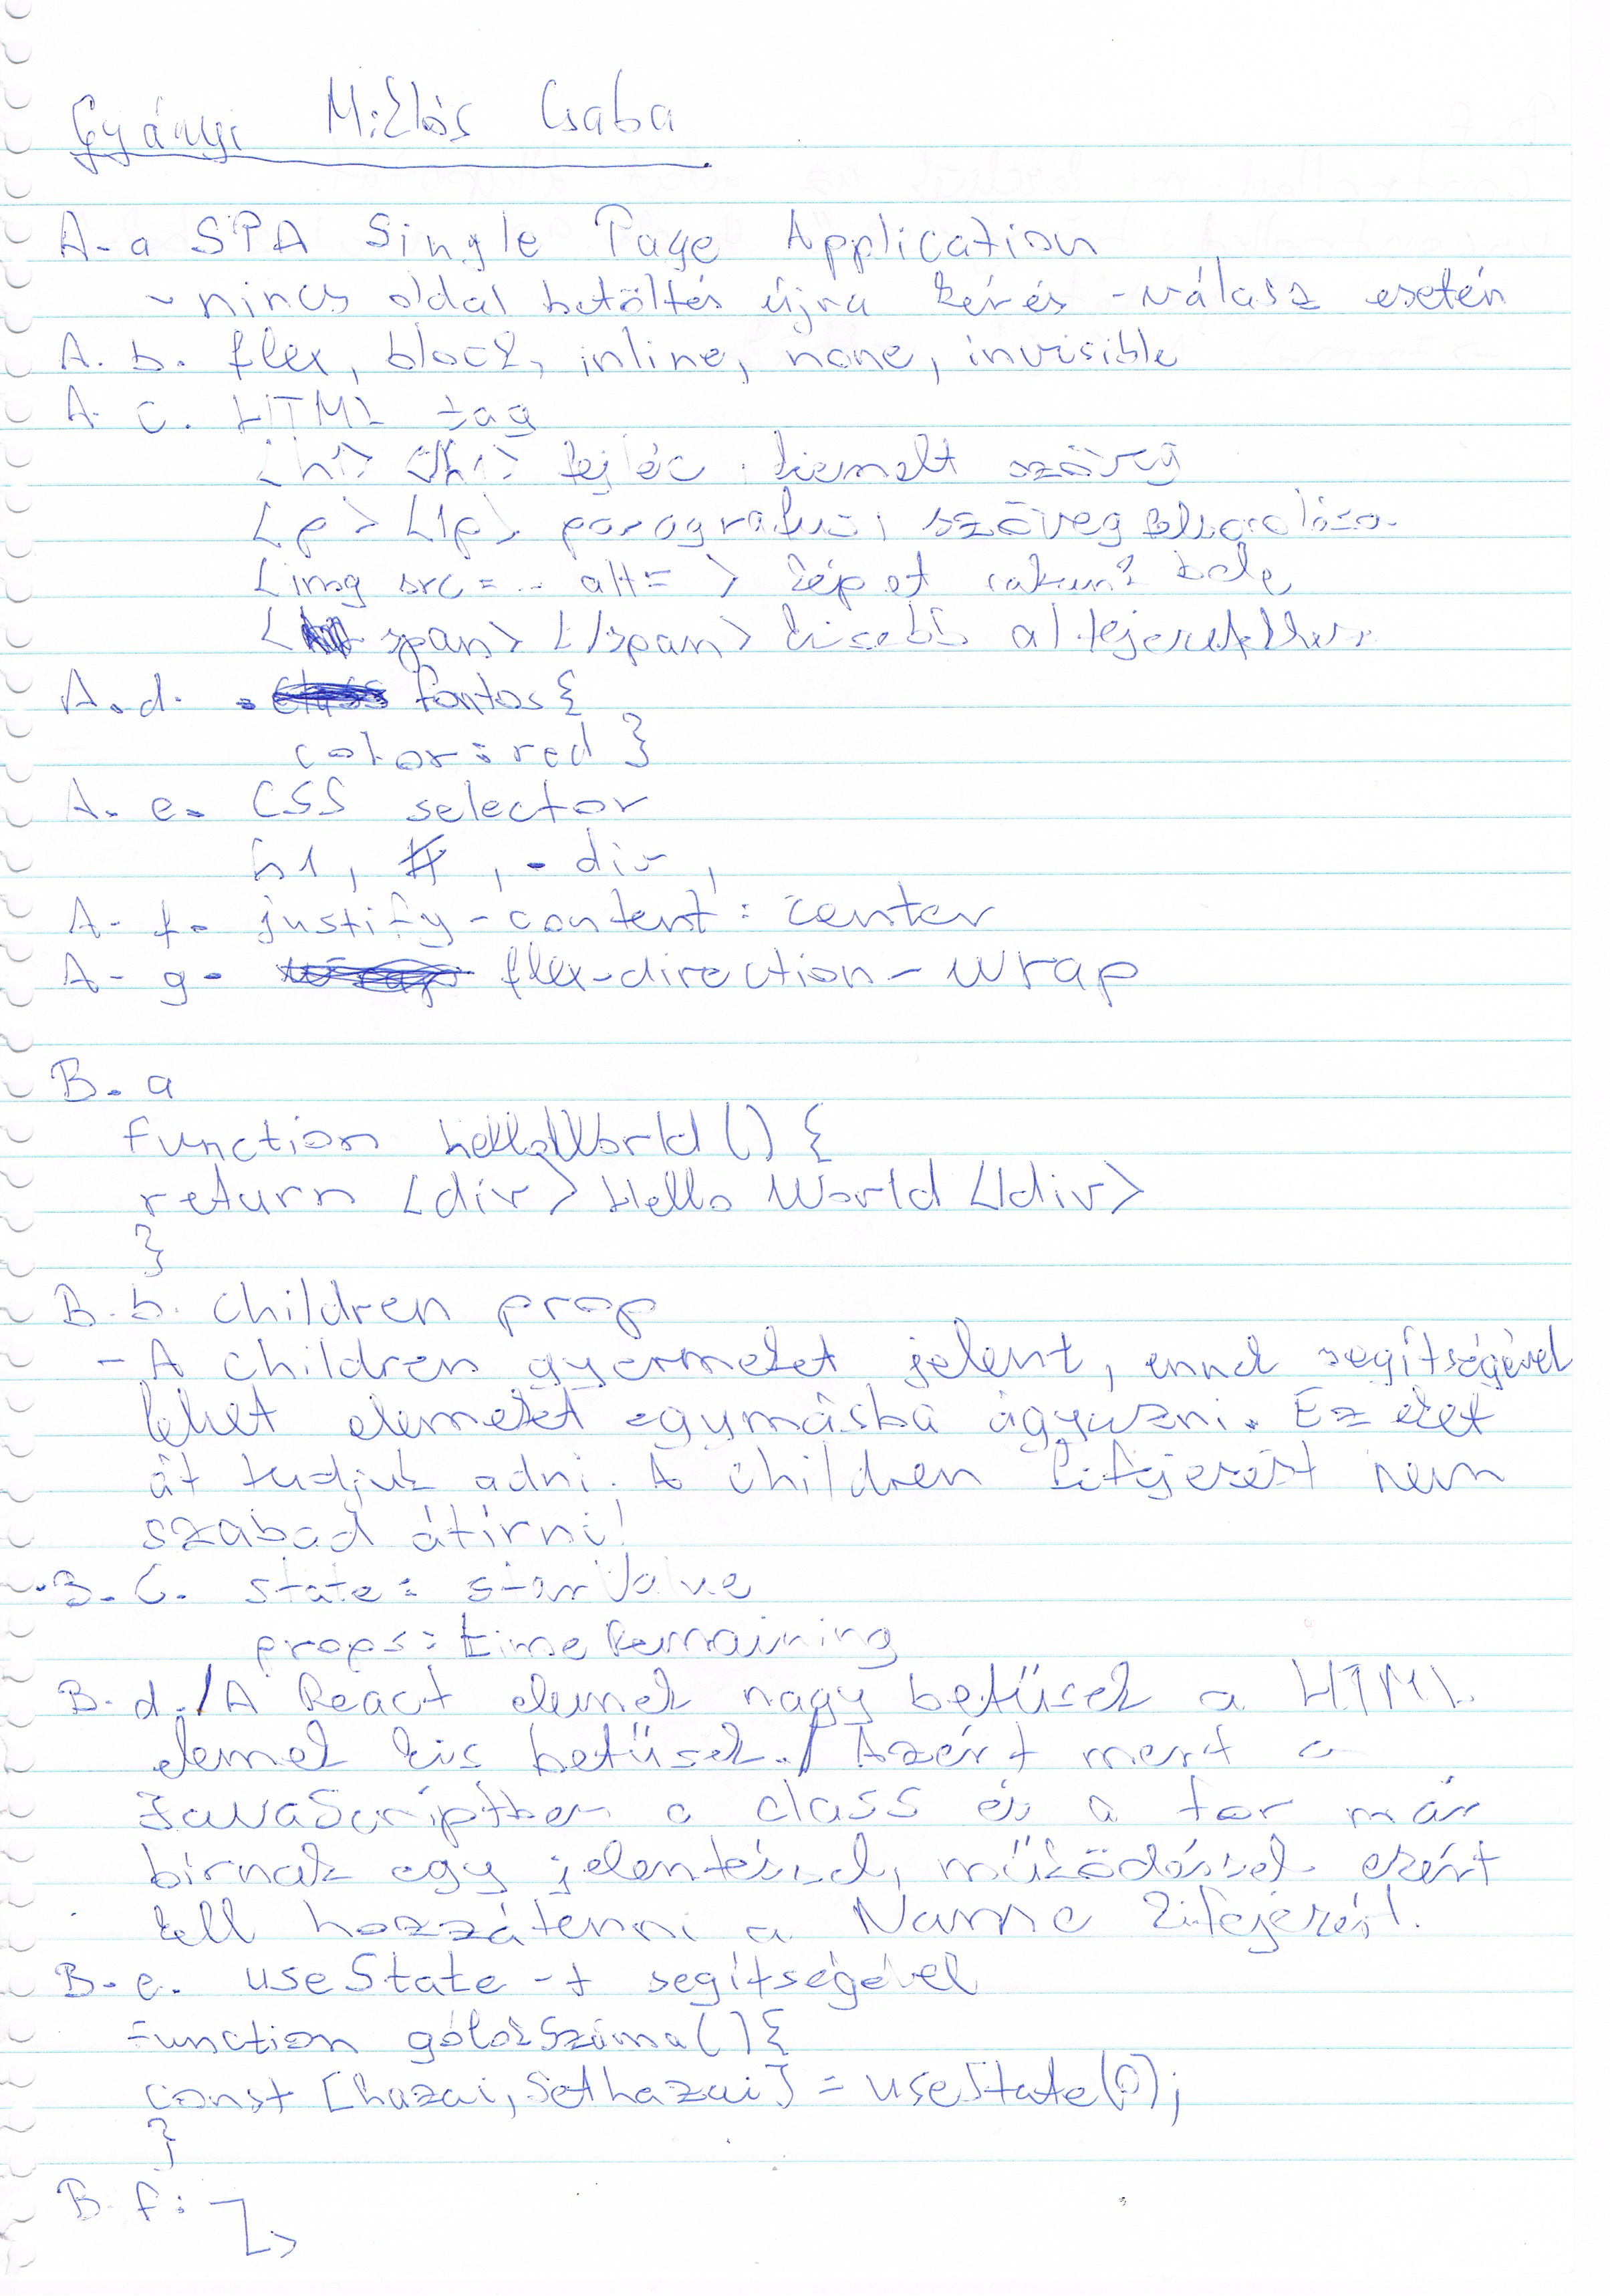 Gyányi Miklós Csaba
A-a SPA Single Page Application
- nincs oldal betöltés újra kérés-válasz esetén
A. b. flex, block, inline, none, invisible
A. c. HTML tag
<h1> </h1> fejléc, kiemelt szöveg
<p> </p> paragrafus; szöveg
<img src=.. alt= > képet rakunk bele
<span> </span> kisebb
A. d. .fontos {
color:red }
A. e. CSS selector
h1, #, . div,
A. f. justify-content: center
A. g. flex-direction-wrap
B. a
function helloWorld() {
return <div> Hello World </div>
}
B. b. children prop
- A children gyermeket jelent, ennek segítségével
lehet elemeket egymásba ágyazni. Ezeket
át tudjuk adni. A children kifejezést nem
szabad átírni!
B. C. state: starValue
props: timeRemaining
B. d. / A React elemek nagy betűsek a HTML
elemek kis betűsek. / Azért mert a
JavaScriptben a class és a for már
bírnak egy jelentéssel, működéssel ezért
kell hozzátenni a Name kifejezést.
B. e. useState -t segítségével
function gólokSzáma() {
const [hazai, setHazai] = useState(0);
}
B. f: